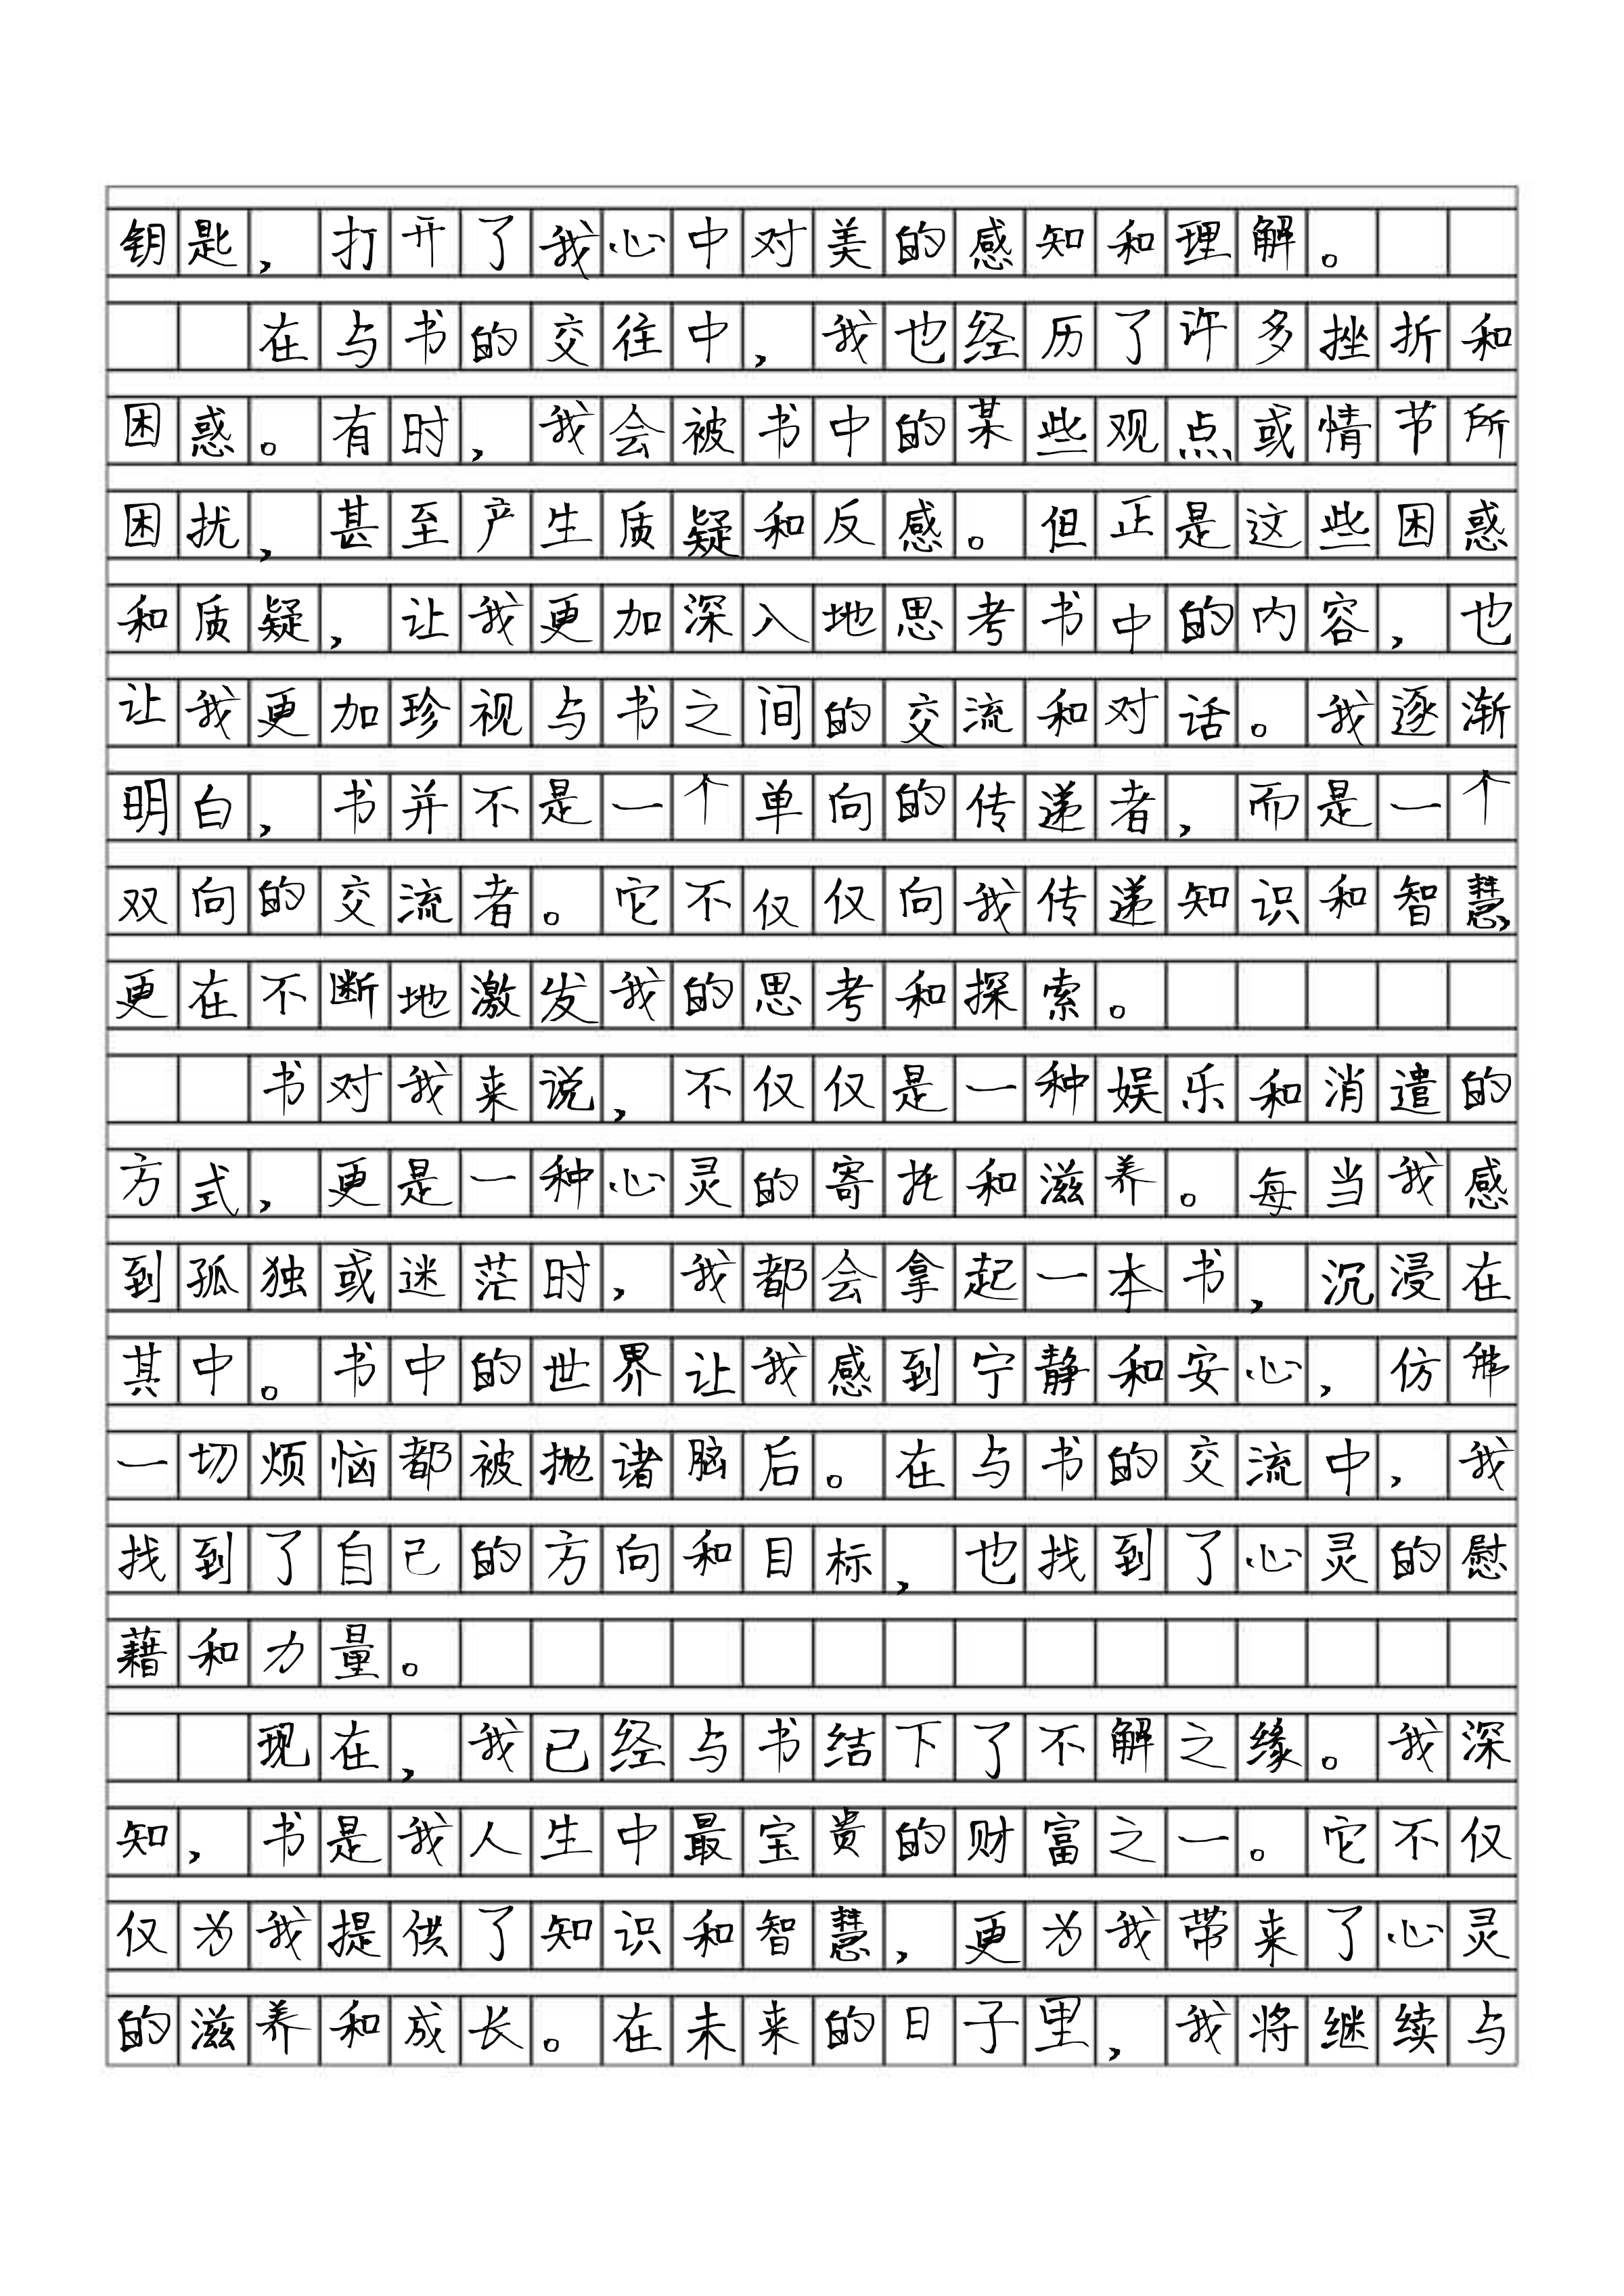 钥匙，打开了我心中对美的感知和理解。
在与书的交往中，我也经历了许多挫折和
困惑。有时，我会被书中的某些观点或情节所
困扰，甚至产生质疑和反感。但正是这些困惑
和质疑，让我更加深入地思考书中的内容，也
让我更加珍视与书之间的交流和对话。我逐渐
明白，书并不是一个单向的传递者，而是一个
双向的交流者。它不仅仅向我传递知识和智慧，
更在不断地激发我的思考和探索。
书对我来说，不仅仅是一种娱乐和消遣的
方式，更是一种心灵的寄托和滋养。每当我感
到孤独或迷茫时，我都会拿起一本书，沉浸在
其中。书中的世界让我感到宁静和安心，仿佛
一切烦恼都被抛诸脑后。在与书的交流中，我
找到了自己的方向和目标，也找到了心灵的慰
藉和力量。
现在，我已经与书结下了不解之缘。我深
知，书是我人生中最宝贵的财富之一。它不仅
仅为我提供了知识和智慧，更为我带来了心灵
的滋养和成长。在未来的日子里，我将继续与